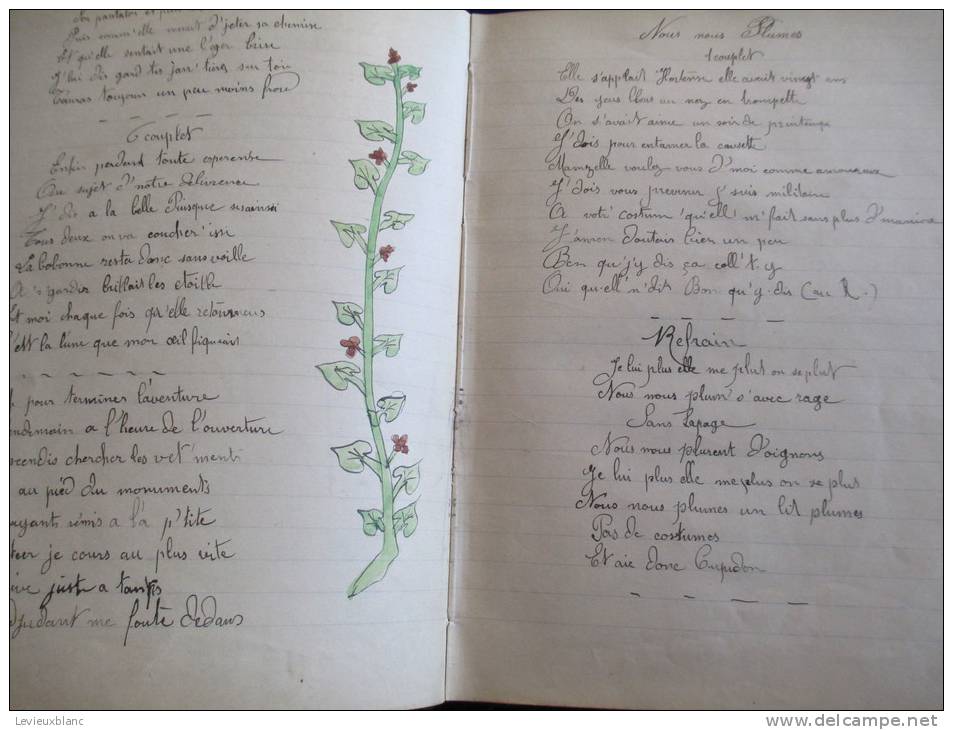 Puis comm'elle venait d'jeter sa chemise
Et qu'elle sentait une léger brise
J'lui dis gard tes jarr'tières sur toi
T'auras toujours un peu moins froid
6 couplet
Enfin perdand toute esperense
Au sujet d'notre délivrence
J'dis a la belle Puisque sesainsi
Tous deux on va coucher'issi
La bobonne resta donc sans voille
A r'garder brillait les etoille
Et moi chaque fois qu'elle retournais
C'est la lune que mon œil fiquiais
pour terminer l'aventure
endemain a l'heure de l'ouverture
scendis chercher les vet'ments
au pied du monuments
ayant remis a la p'tite
je cours au plus vite
ive juste a temps
djudant me foute dedans
Nous nous Plumes
1 couplet
Elle s'applait Hortense elle avait vingt ans
Des yeus bleus un nez en trompette
On s'avait aimé un soir de printemps
J'dois pour entamer la causette
Mamzelle voulez vous d'moi comme amoureux
J'dois vous prevenir j'suis militaire
A vot' costum' qu'ell' m'fait sans plus d'manière
J'amen doutais bien un peu
Bon qu'j'y dis ça coll't.y
Oui qu'ell'n'dit Bon qu'y dis (au R.)
Refrain
Je lui plus elle me plut on se plut
Nous nous plum's avec rage
Sans tapage
Nous nous plurent d'oignons
Je lui plus elle me plus on se plut
Nous nous plumes un lit plumes
Pas de costumes
Et aie donc Cupidon
Levieuxblanc
www.delcampe.net